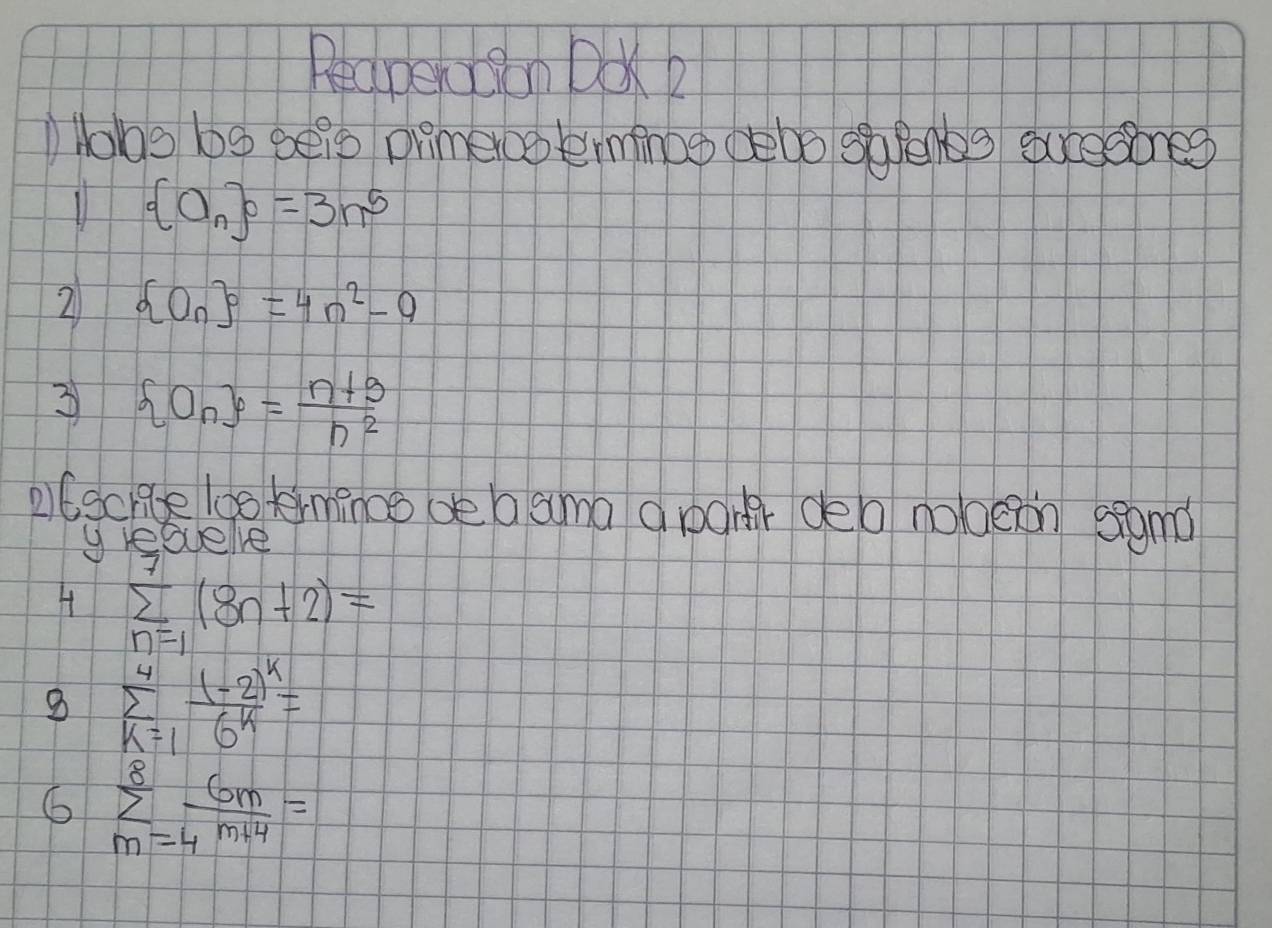 Recuperación DoK 2
1) Halla los seis primeros terminos de las siguientes sucesiones
1) {an} = 3n⁵
2) {an} = 4n² - 9
3) {an} = (n+5)/n²
2) Escribe los términos de la suma a partir de la notación sigma
y resuelve
4 ∑_{n=1}^{7} (8n+2) =
5 ∑_{k=1}^{4} (-2)^k/6^k =
6 ∑_{m=4}^{8} 6m/(m+4) =